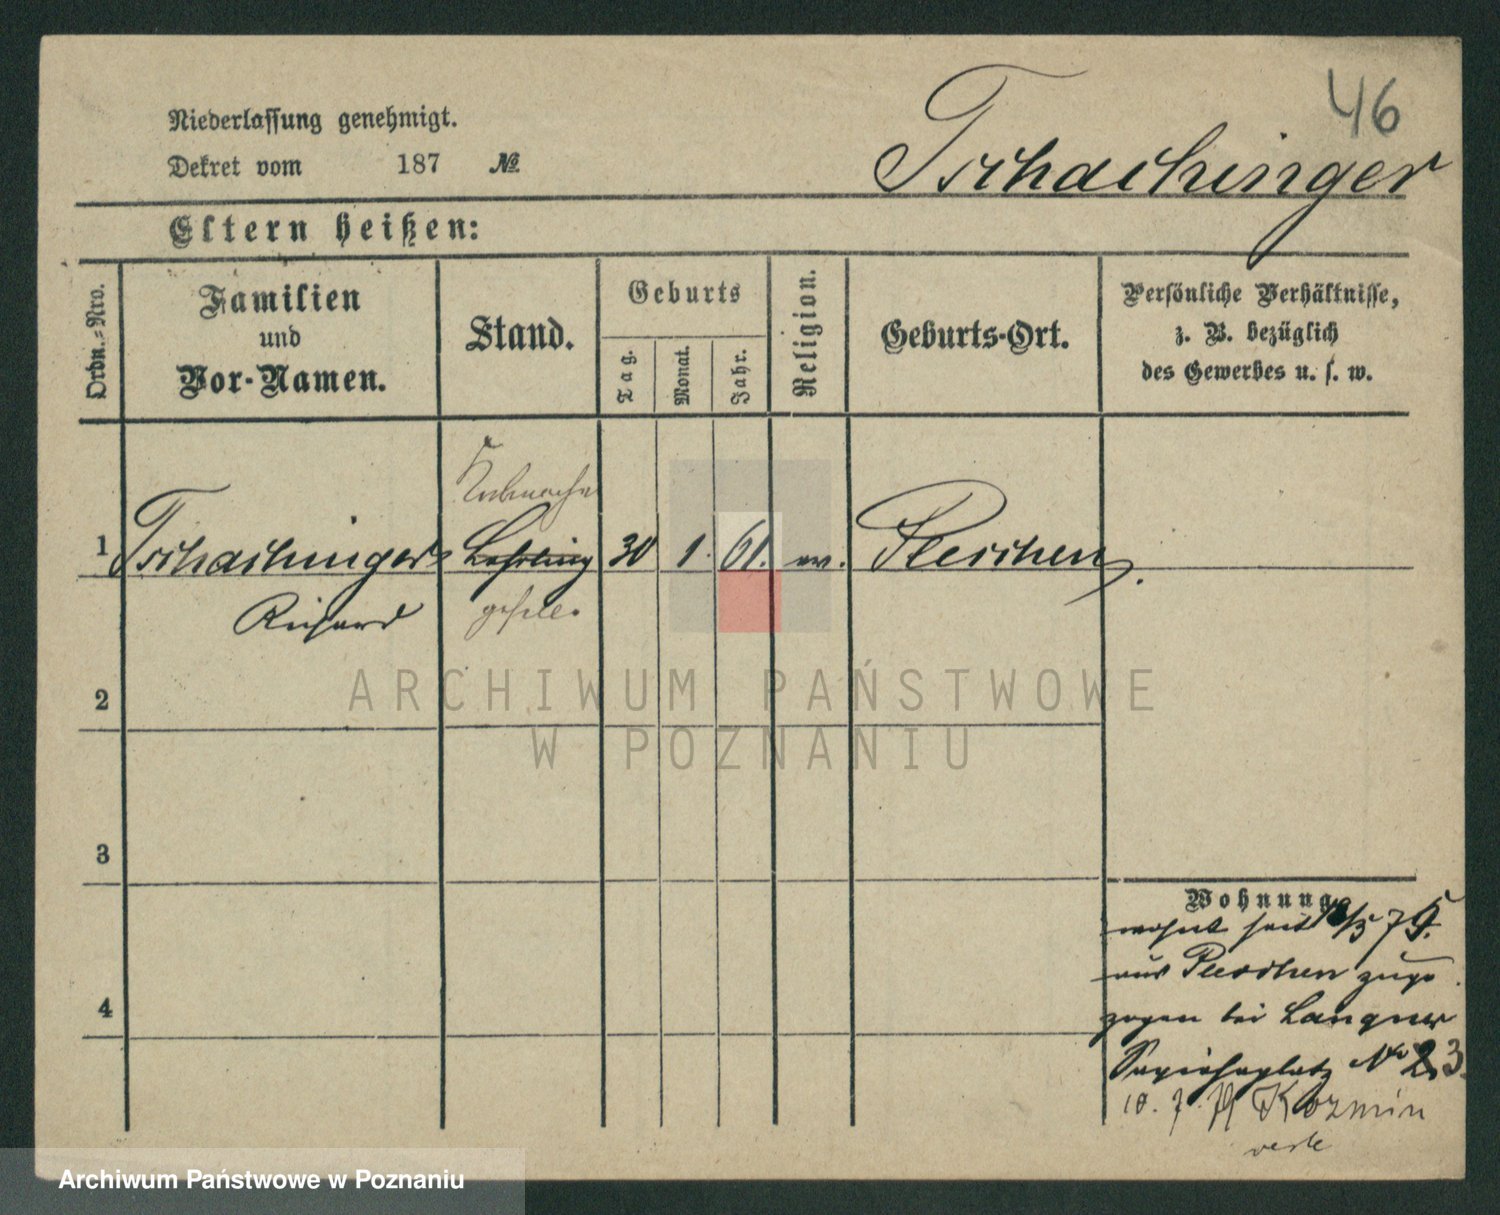 46
Niederlassung genehmigt.
Dekret vom 187 №
Tschachinger
Eltern heißen:
Ordn.-Nro.
Familien
und
Vor-Namen.
Stand.
Geburts
Tag.
Monat.
Jahr.
Religion.
Geburts-Ort.
Persönliche Verhältnisse,
z. B. bezüglich
des Gewerbes u. s. w.
1 Tschachinger Lehrling 30 1. 61. Pleschen.
Richard geselle
2
3
4
Wohnung
wohnt seit 75.
aus Pleschen zuge
zogen bei Langner
Sapiehaplatz No 3.
10. 7. 79 Kozmin
ARCHIWUM PAŃSTWOWE
W POZNANIU
Archiwum Państwowe w Poznaniu